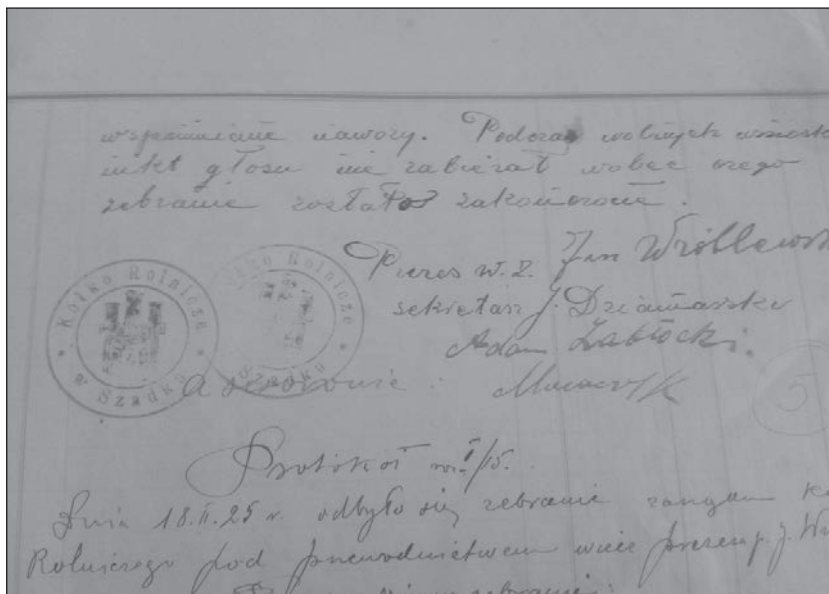 wspomniane nawozy. Podczas wolnych wniosk
nikt głosu nie zabierał wobec czego
zebranie zostało zakończone.
Prezes w. z. Jan Wróblewsk
sekretarz J. Dziamarski
Adam Zabłocki.
Kółko Rolnicze
w Szadku
Kółko Rolnicze
w Szadku
Asesorowie:
5
Protokół nr. I/15.
Dnia 18.II.25 r. odbyło się zebranie zarządu K
Rolniczego pod przewodnictwem wice prezesa p. J. Wr
zebrania: